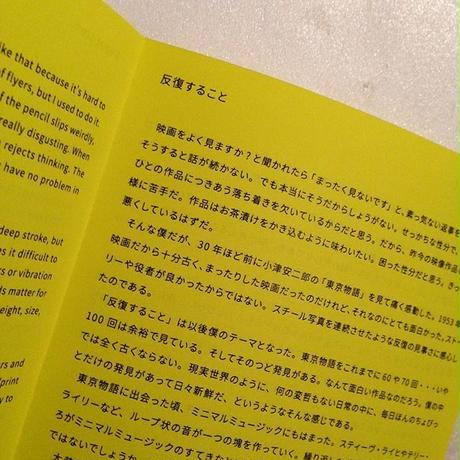 ike that because it's hard to
of flyers, but I used to do it.
f the pencil slips weirdly,
really disgusting. When
rejects thinking. The
have no problem in
deep stroke, but
es it difficult to
rs or vibration
ds matter for
eight, size,
rs and
print
y to
反復すること
映画をよく見ますか？と聞かれたら「まったく見ないです」と、素っ気ない返事を
そうすると話が続かない。でも本当にそうだからしょうがない。せっかちな性分で、
ひとの作品につきあう落ち着きを欠いているからだと思う。だから、昨今の映像作品
様に苦手だ。作品はお茶漬けをかき込むように味わいたい。困った性分だと思う。きっ
悪くしているはずだ。
そんな僕だが、30年ほど前に小津安二郎の「東京物語」を見て痛く感動した。1953年
映画だから十分古く、まったりした映画だったのだけれど、それなのにとても面白かった。ストー
リーや役者が良かったからではない。スチール写真を連続させたような反復の見事さに感心し
たのである。
「反復すること」は以後僕のテーマとなった。東京物語をこれまでに60や70回・・・いや
100回は余裕で見ている。そしてそのつど発見がある。なんて面白い作品なのだろう。僕の中
では全く古くならない。現実世界のように、何の変哲もない日常の中に、毎日ほんのちょびっ
とだけの発見があって日々新鮮だ、というようなそんな感じである。
東京物語に出会った頃、ミニマルミュージックにもはまった。スティーヴ・ライヒやテリー・
ライリーなど、ループ状の音が一つの塊を作っていく。繰り返し
ろがミニマルミュージックのすてきな
ではないでしょうか